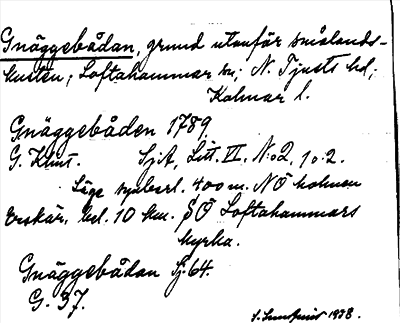 Gnäggebådan, grund utanför smålands-
kusten; Loftahammar sn; N. Tjusts hd;
Kalmar l.
Gnäggebåden 1789.
G. Klint. SjA, Litt. VI. N:o 2, 1 o. 2.
Läge 400 m. NÖ holmen
Torskär, 10 km. SÖ Loftahammars
kyrka.
Gnäggebådan Sj. 64.
G. 37.
1938.